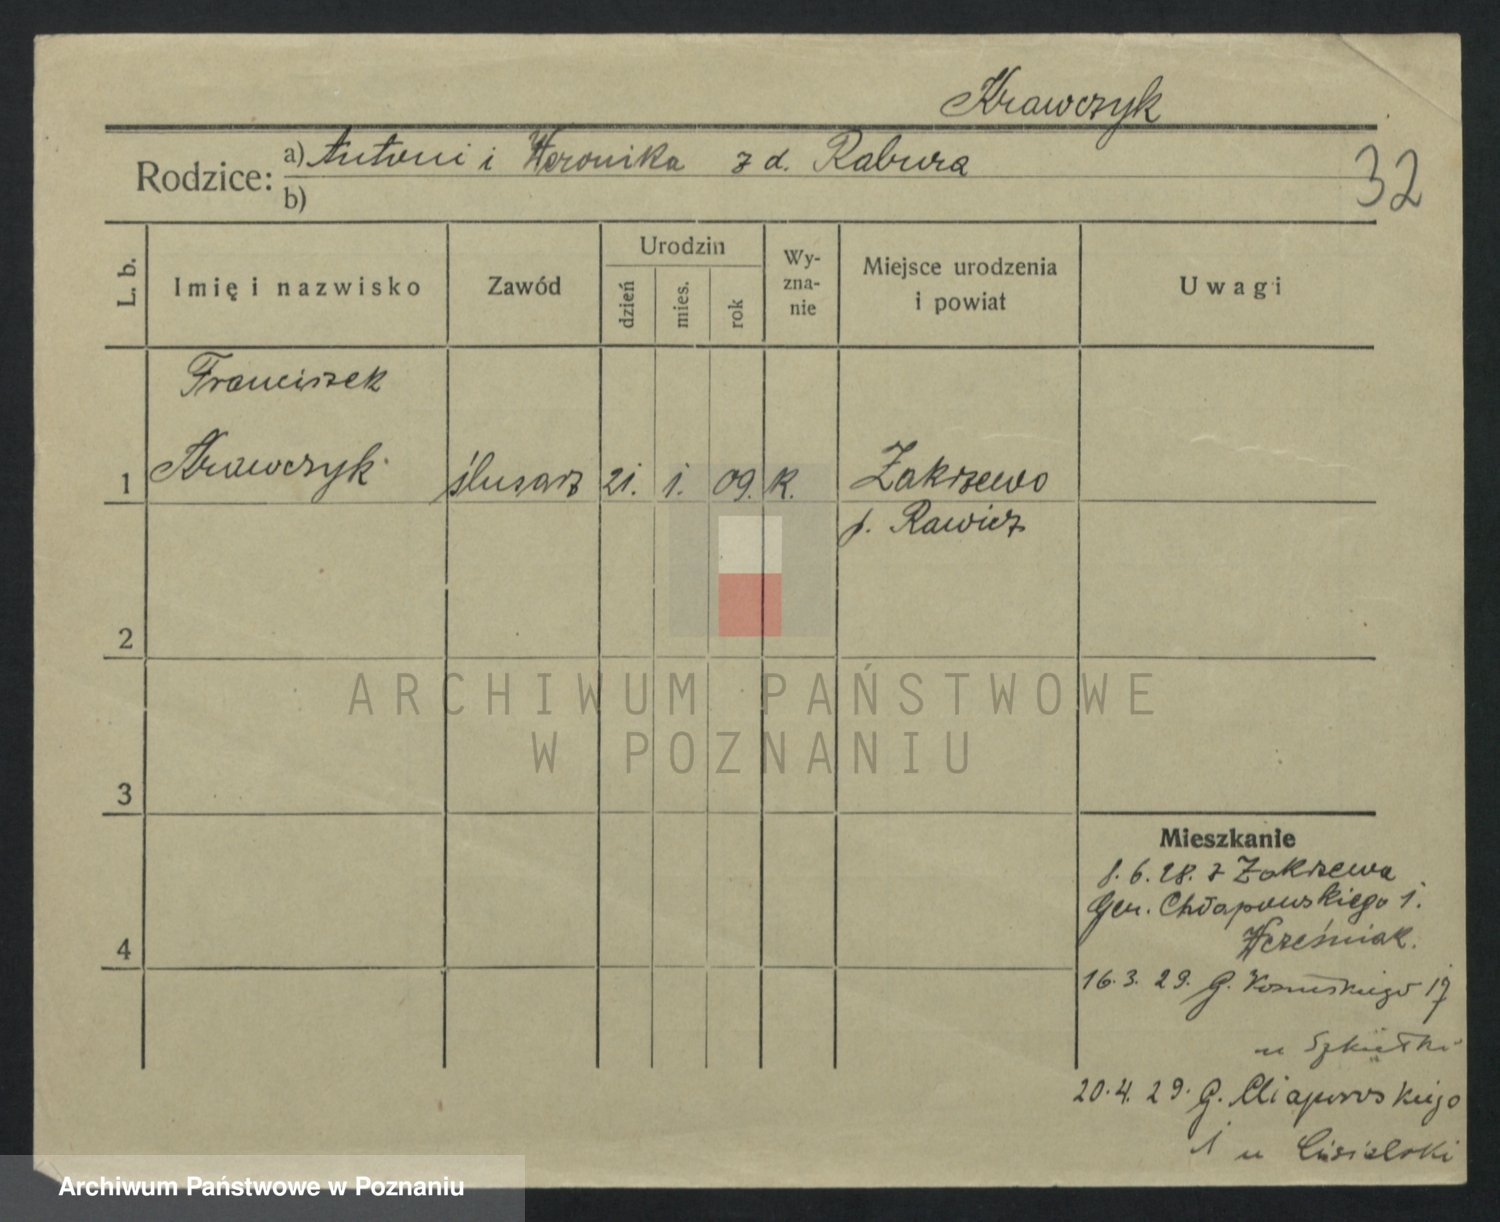 Krawczyk
Rodzice: a) Antoni i Weronika z d. Rabura
b)
32
L. b.
Imię i nazwisko
Zawód
Urodzin
dzień
mies.
rok
Wy-
zna-
nie
Miejsce urodzenia
i powiat
Uwagi
Franciszek
1 Krawczyk ślusarz 21. 1. 09. k. Zakrzewo
p. Rawicz
2
3
4
ARCHIWUM PAŃSTWOWE
W POZNANIU
Mieszkanie
1. 6. 28. z Zakrzewa
Gen. Chłapowskiego 1.
Wcześniak.
16. 3. 29. G. 17
u
20. 4. 29. G. Chłapowskiego
1 u
Archiwum Państwowe w Poznaniu